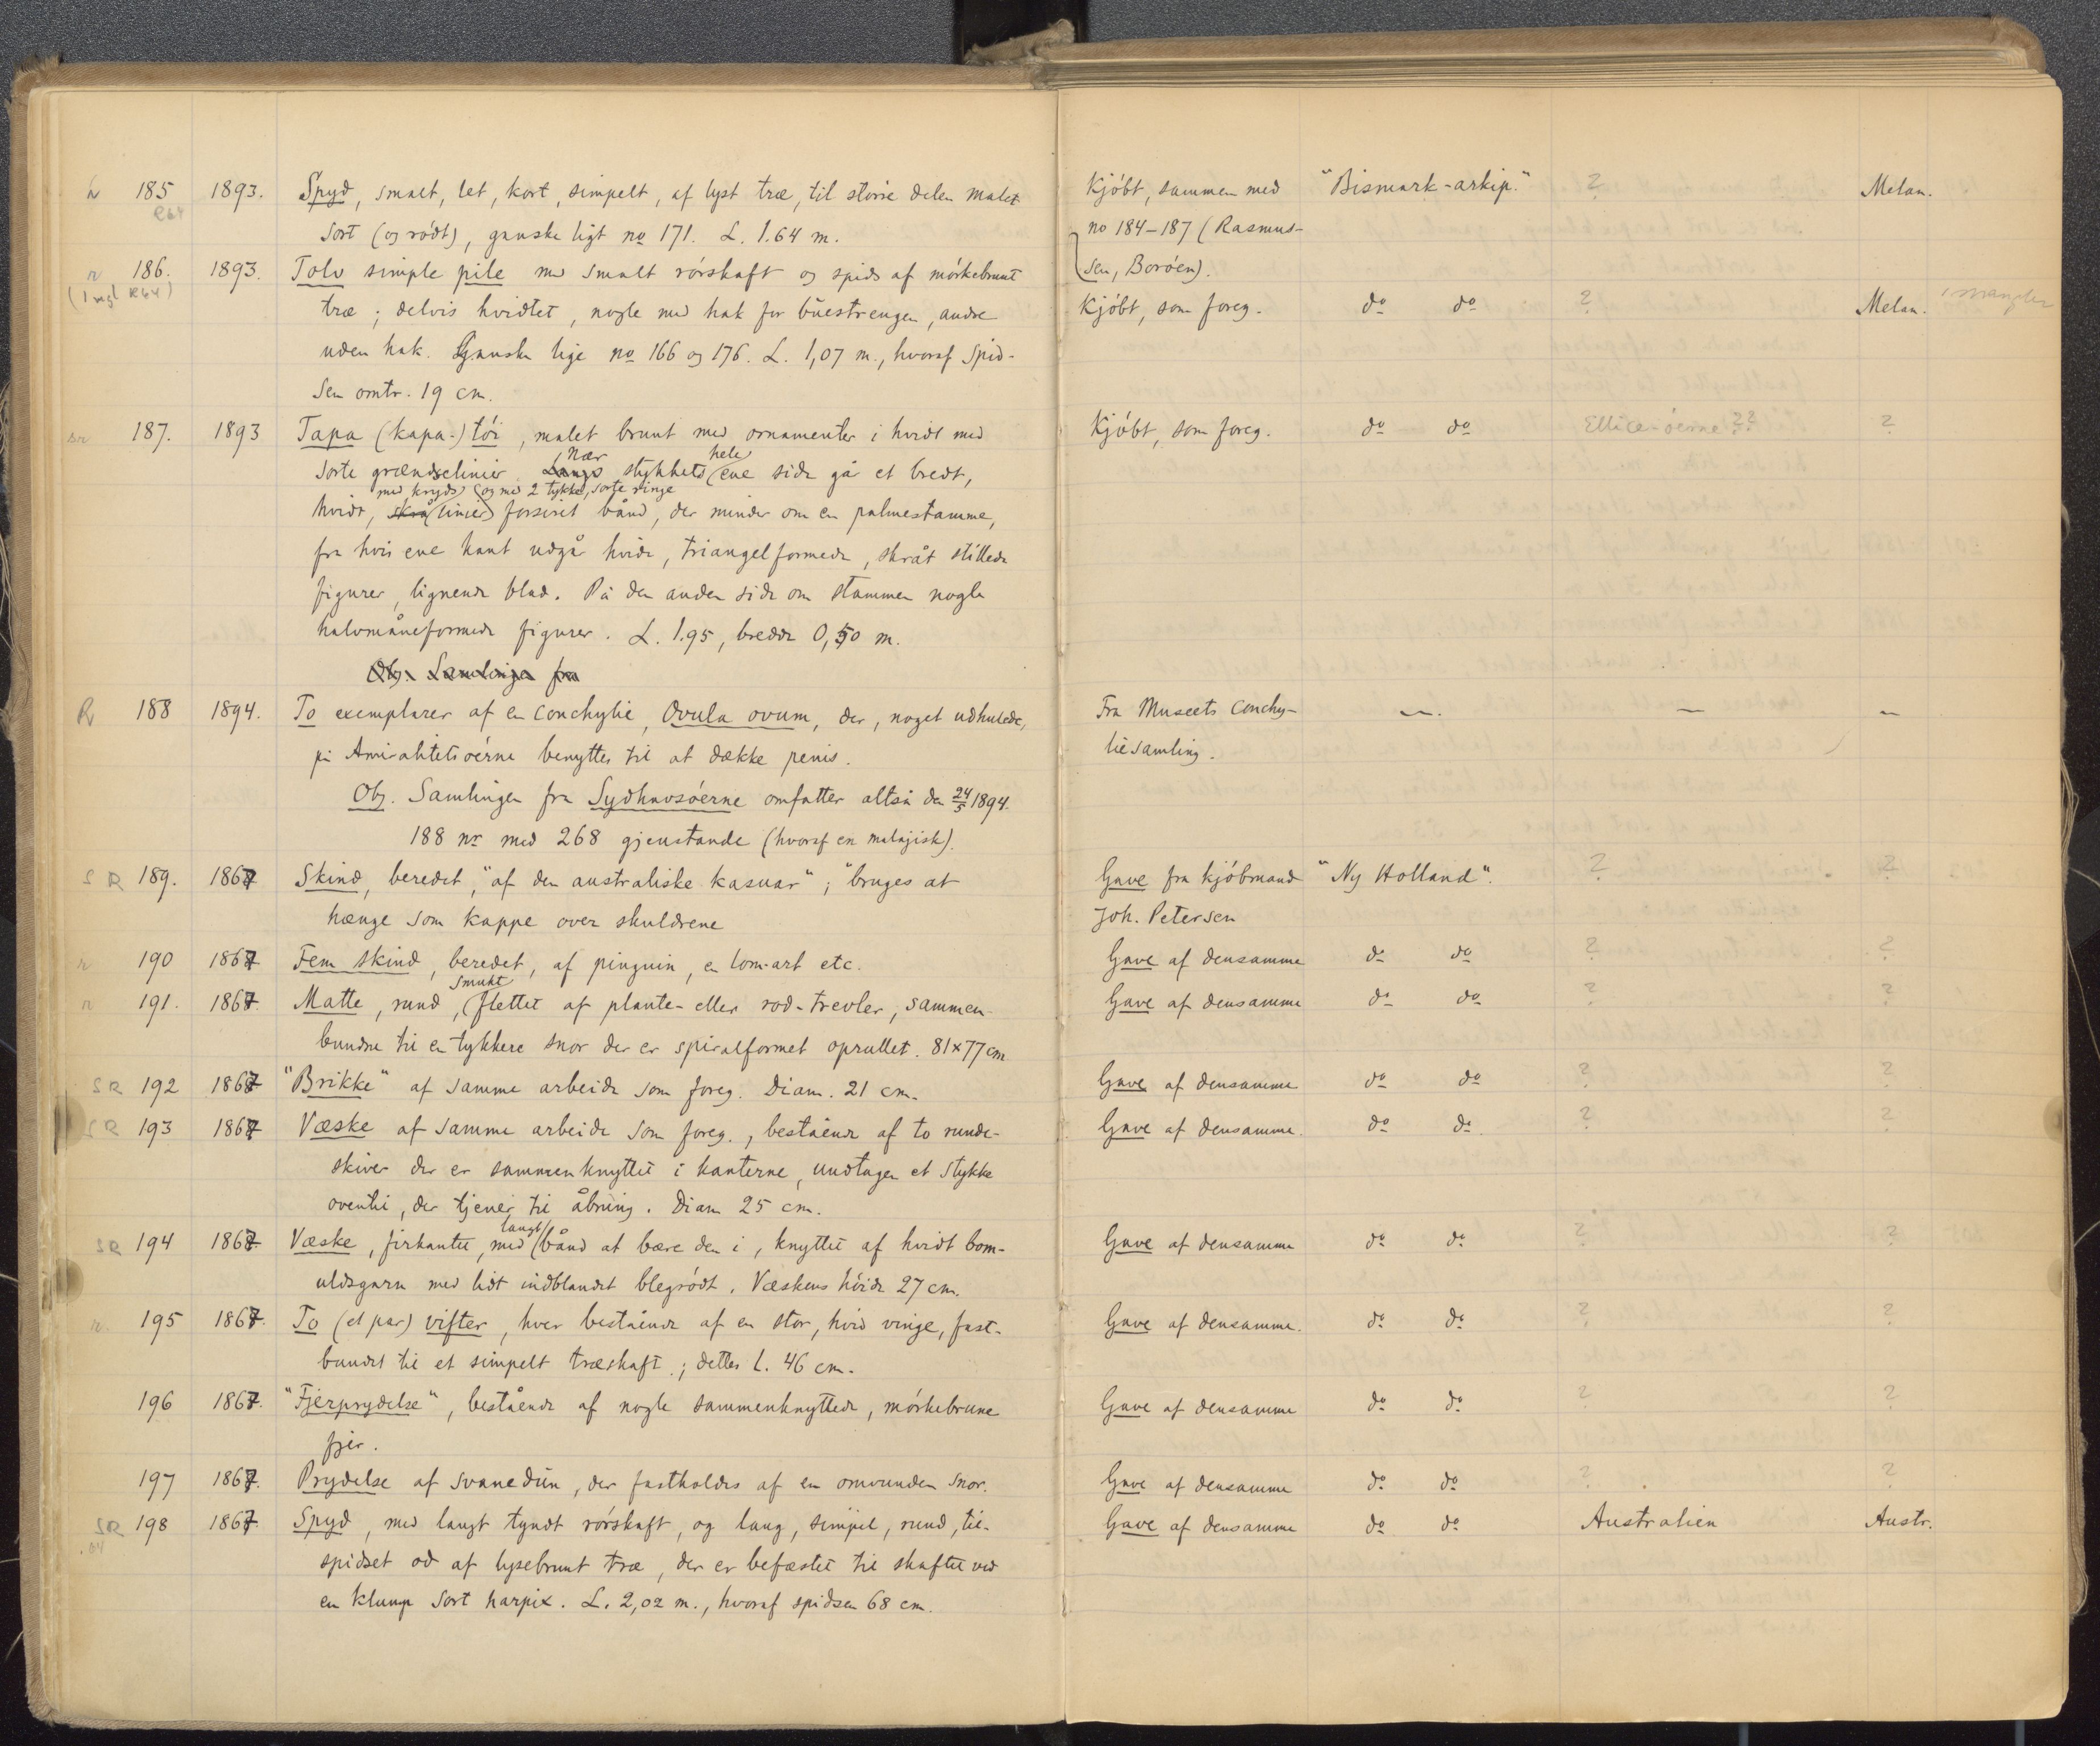 185 1893. Spyd, smalt, let, kort, simpelt, af lyst træ, til större delen malet Kjöbt, sammen med "Bismark-arkip." ? Melan.
R64 sort (og rödt), ganske ligt no 171. L. 1.64 m. no 184–187 (Rasmus-
r 186. 1893. Tolv simple pile med smalt rörskaft og spids af mörkebrunt sen, Boröen).
(1 mgl R64) træ; delvis hvidtet, nogle med hak for buestrengen, andre Kjöbt, som foreg. do do ? Melan. 1 mangler
uden hak. Ganske lige no 166 og 176. L. 1,07 m., hvoraf spid-
sen omtr. 19 cm.
sr 187. 1893 Tapa (kapa-) töi, malet brunt med ornamenter i hvidt med Kjöbt, som foreg. do do Ellice-öerne ?? ?
sorte grændselinier. Langs Nær stykkets hele ene side gå et bredt,
med kryds og med 2 tykke, sorte ringe
hvidt, skrå linier forsiret bånd, der minder om en palmestamme,
fra hvis ene kant udgår hvide, triangelformede, skråt stillede
figurer, lignende blad. På den anden side om stammen nogle
halvmåneformede figurer. L. 1.95, bredde 0,50 m.
Obs. Samlingen fra
R 188 1894. To exemplarer af en conchylie, Ovula ovum, der, noget udhulede, Fra Museets conchy- — — —
på Amiralitetsöerne benyttes til at dække penis. liesamling.
Obs. Samlingen fra Sydhavsöerne omfatter altså den 24/5 1894.
188 nr med 268 gjenstande (hvoraf en malajisk).
S R 189. 1867 Skind, beredet, "af den australiske kasuar"; "bruges at Gave fra kjöbmand "Ny Holland". ? ?
hænge som kappe over skuldrene Joh. Petersen
r 190 1867 Fem skind, beredet, af pinguin, en lom-art etc. Gave af densamme do do ? ?
r 191. 1867. Matte, rund, smukt flettet af plante- eller rod-trevler, sammen- Gave af densamme do do ? ?
bundne til en tykkere snor der er spiralformet oprullet. 81×77 cm
SR 192 1867 "Brikke" af samme arbeide som foreg. Diam. 21 cm. Gave af densamme do do ? ?
SR 193 1867 Væske af samme arbeide som foreg., bestående af to runde- Gave af densamme. do do ? ?
skiver der er sammenknyttet i kanterne, undtagen et stykke
oventil, der tjener til åbning. Diam 25 cm.
SR 194 1867. Væske, firkantet, med langt bånd at bære den i, knyttet af hvidt bom- Gave af densamme do do ? ?
uldsgarn med lidt indblandet blegrödt. Væskens höide 27 cm.
r. 195 1867. To (et par) vifter, hver bestående af en stor, hvid vinge, fast- Gave af densamme. do do ? ?
bundet til et simpelt træskaft; dettes l. 46 cm.
196 1867. "Fjerprydelse", bestående af nogle sammenknyttede, mörkebrune Gave af densamme do do ? ?
fjer.
197 1867. Prydelse af svanedun, der fastholdes af en omvunden snor. Gave af densamme do do ? ?
SR 198 1867. Spyd, med langt tyndt rörskaft, og lang, simpel, rund, til- Gave af densamme do do Australien Austr.
.64 spidset od af lysebrunt træ, der er befæstet til skaftet ved
en klump sort harpix. L. 2,02 m., hvoraf spidsen 68 cm.